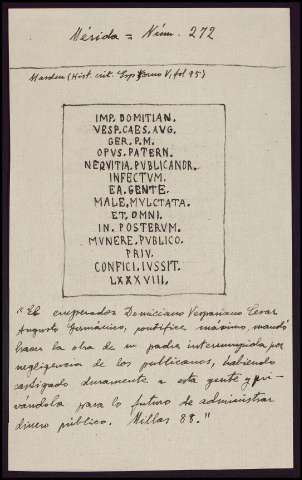 Mérida = Núm. 272
Masdeu (Hist. crit. Esp Tomo V, fol 95)
IMP. DOMITIAN.
VESP. CAES. AVG.
GER. P. M.
OPVS. PATERN.
NEQVITIA. PVBLICANOR.
INFECTVM.
EA. GENTE.
MALE. MVLCTATA.
ET. OMNI.
IN. POSTERVM.
MVNERE. PVBLICO.
PRIV.
CONFICI. IVSSIT.
LXXXVIII.
"El emperador Domiciano Vespasiano Cesar
Augusto Germánico, pontífice máximo, mandó
hacer la obra de su padre interrumpida por
negligencia de los publicanos, habiendo
castigado duramente a esta gente y pri-
vándola para lo futuro de administrar
dinero público. Millas 88."